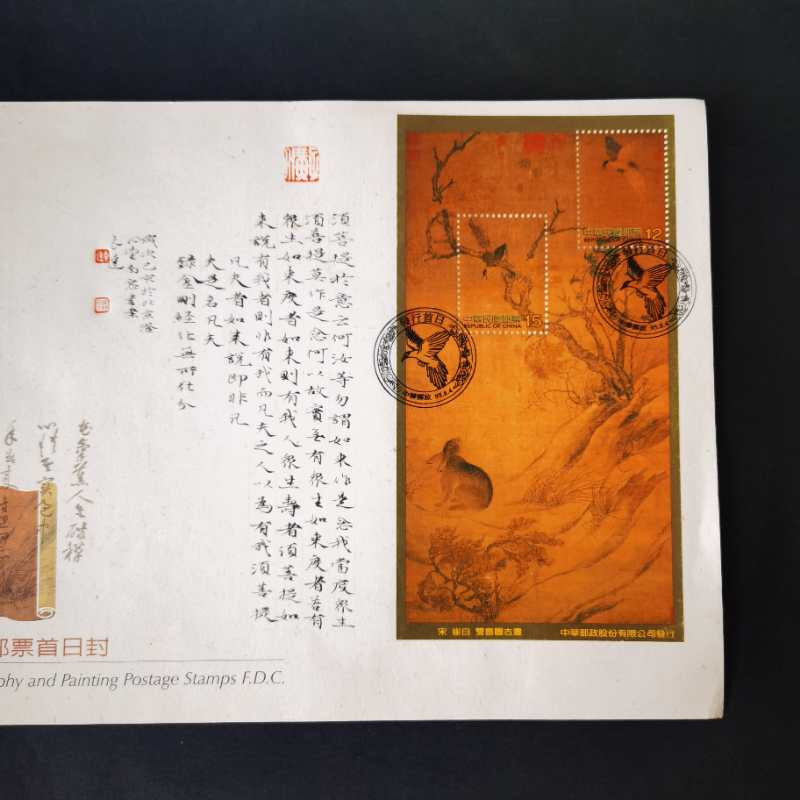 須菩提於意云何汝等勿謂如來作是念我當度眾生
須菩提莫作是念何以故實無有眾生如來度者若有
眾生如來度者如來則有我人眾生壽者須菩提如
來說有我者則非有我而凡夫之人以為有我須菩提
凡夫者如來說即非凡
夫是名凡夫
錄金剛經化無所化分
中華民國郵票 12
中華民國郵票 15
REPUBLIC OF CHINA
發行首日
中華郵政
發行首日
中華郵政
宋 崔白 雙喜圖古畫 中華郵政股份有限公司發行
郵票首日封
phy and Painting Postage Stamps F.D.C.